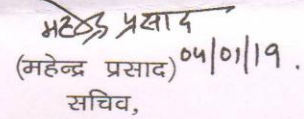 महेन्द्र प्रसाद
(महेन्द्र प्रसाद) 04/01/19.
सचिव,